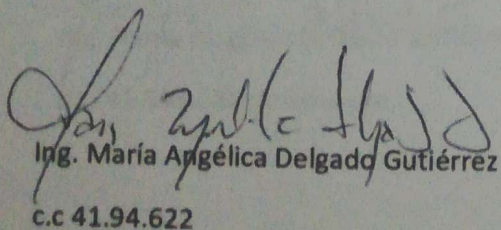 Ing. María Angélica Delgado Gutiérrez
c.c 41.94.622